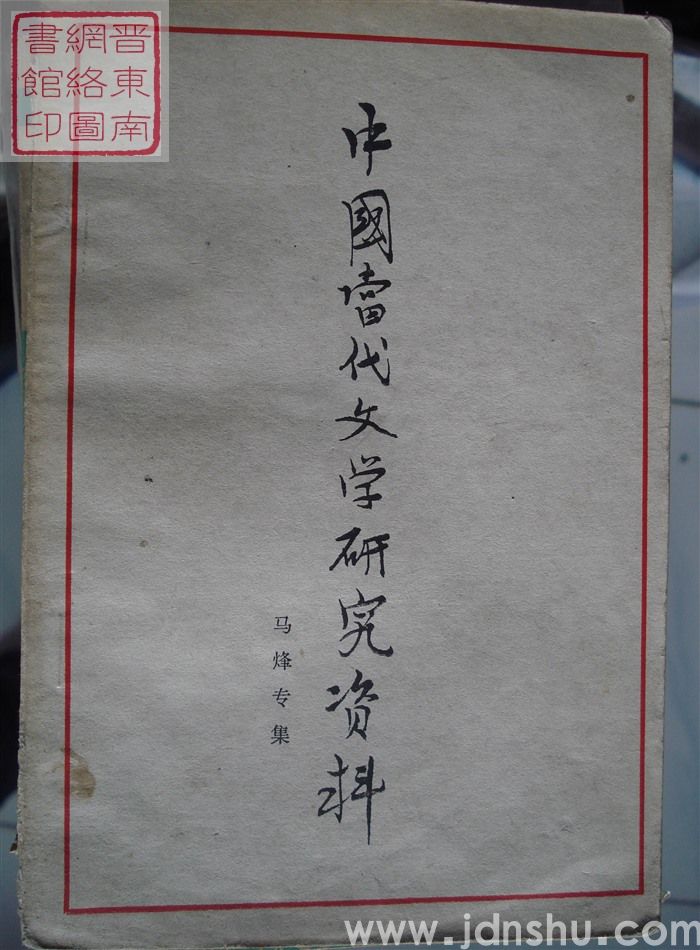 晋東南
網絡圖
書館印
中國當代文学研究资料
马烽专集
www.jdnshu.com